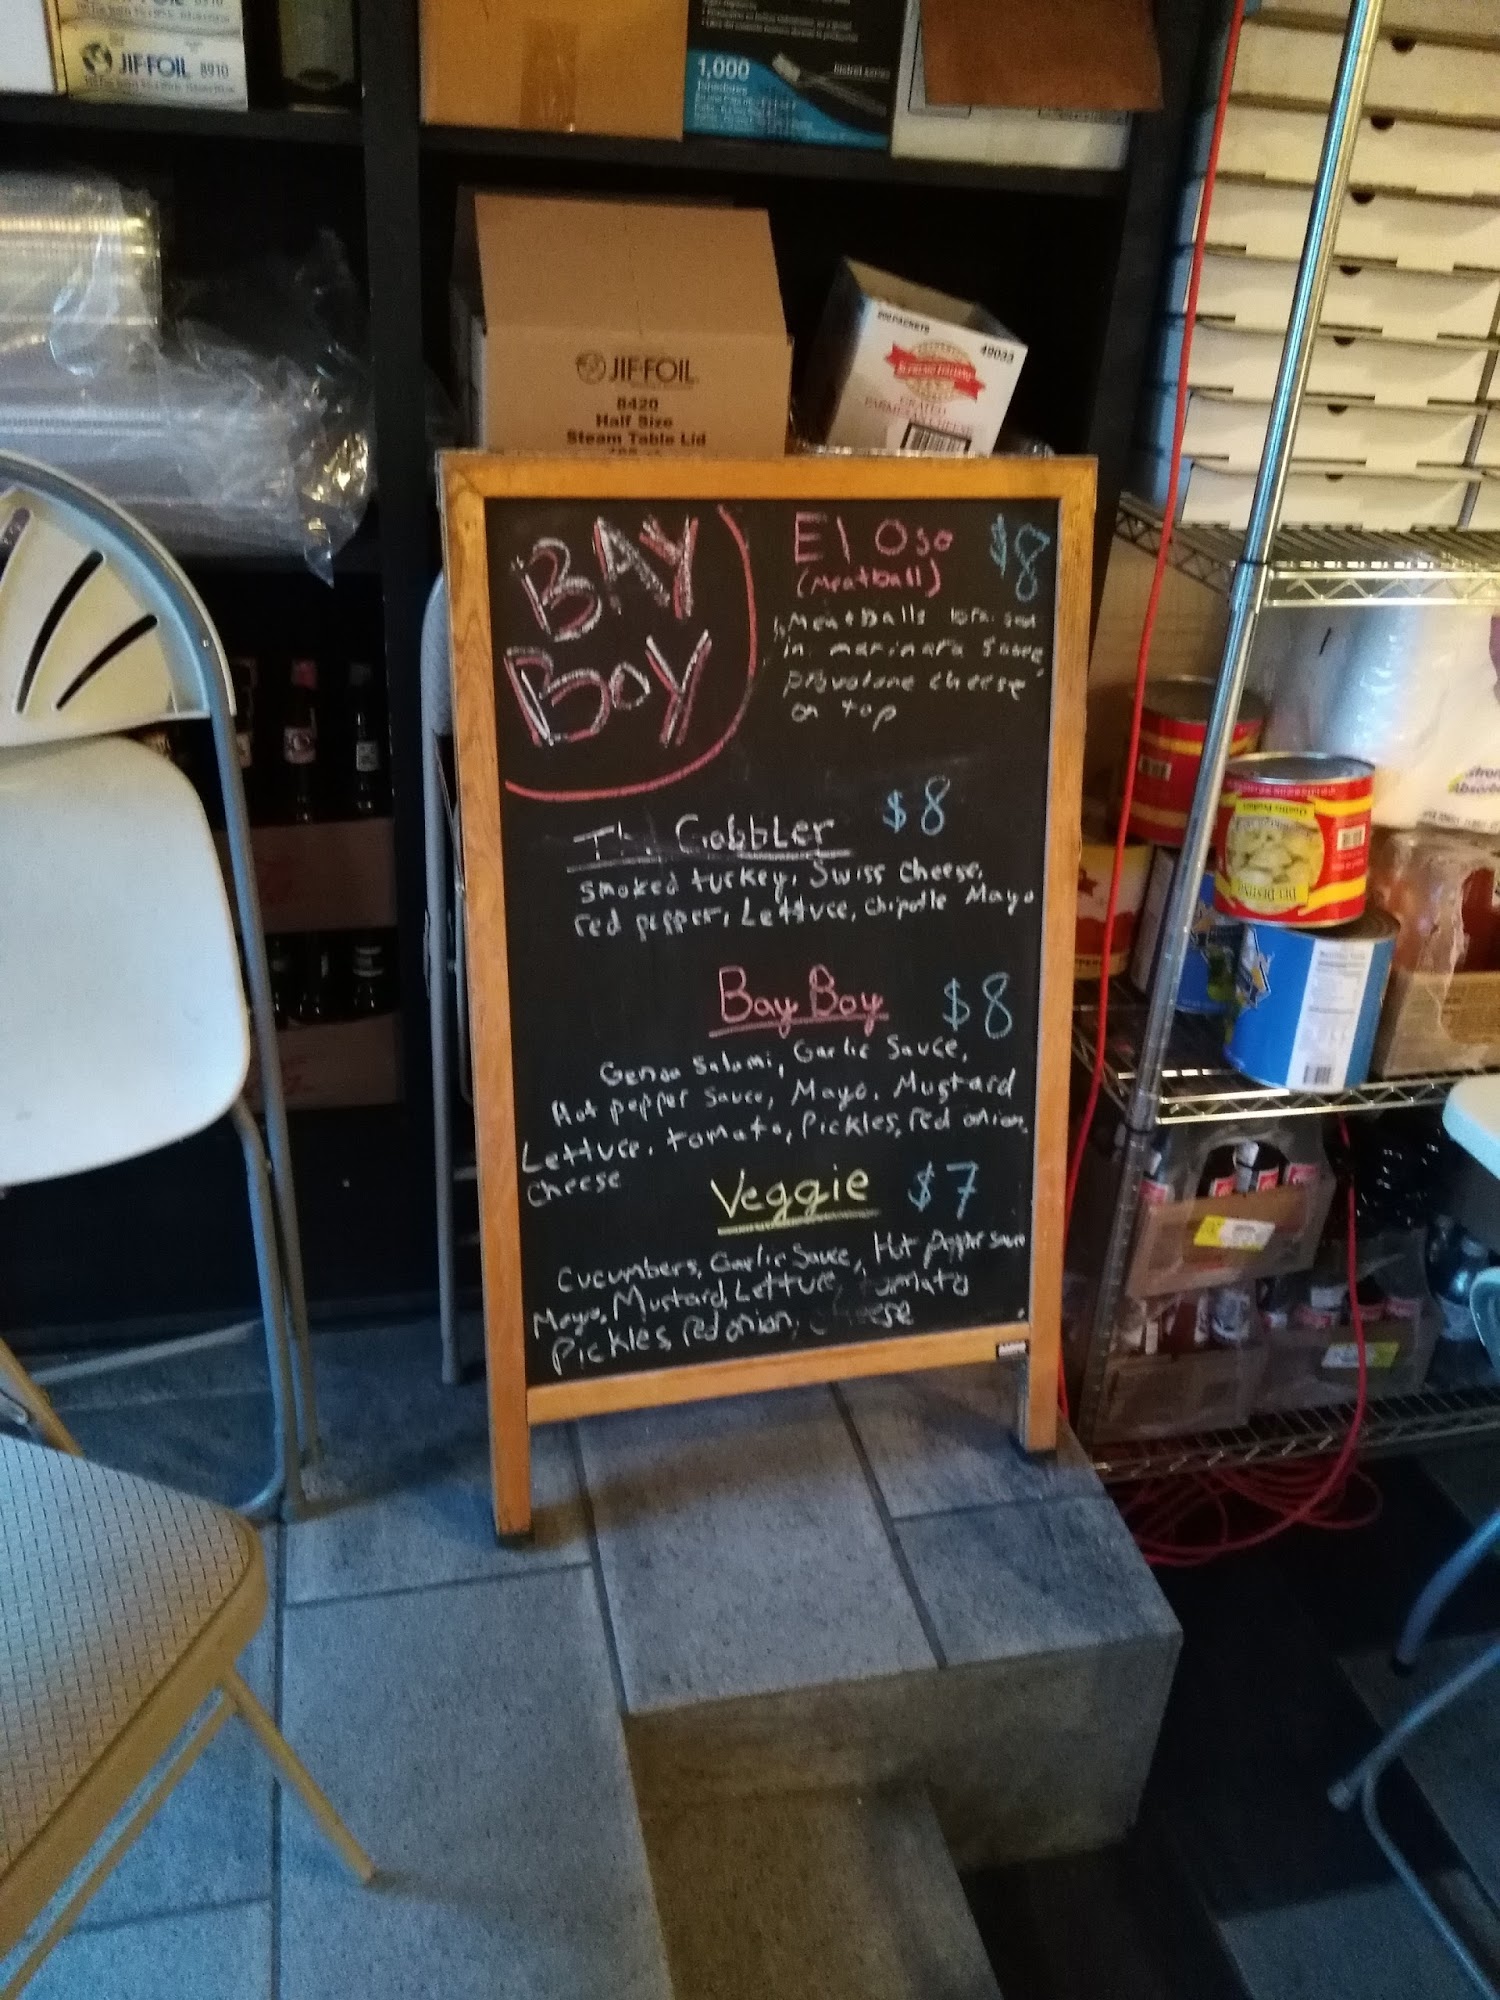 JIF-FOIL 8910
1,000
JIF-FOIL
8420
Half Size
Steam Table Lid
200 PACKETS
49033
GRATED
PARMESAN CHEESE
BAY
BOY
El Oso $8
(Meatball)
Meatballs braised
in marinara sauce
provolone cheese
on top
The Gobbler $8
smoked turkey, Swiss cheese,
red pepper, Lettuce, chipotle Mayo
Bay Boy $8
Genoa Salami, Garlic Sauce,
Hot pepper sauce, Mayo, Mustard
Lettuce, tomato, Pickles, red onion,
cheese
Veggie $7
Cucumbers, Garlic Sauce, Hot Pepper sauce
Mayo, Mustard, Lettuce, tomato
Pickles, red onion, cheese